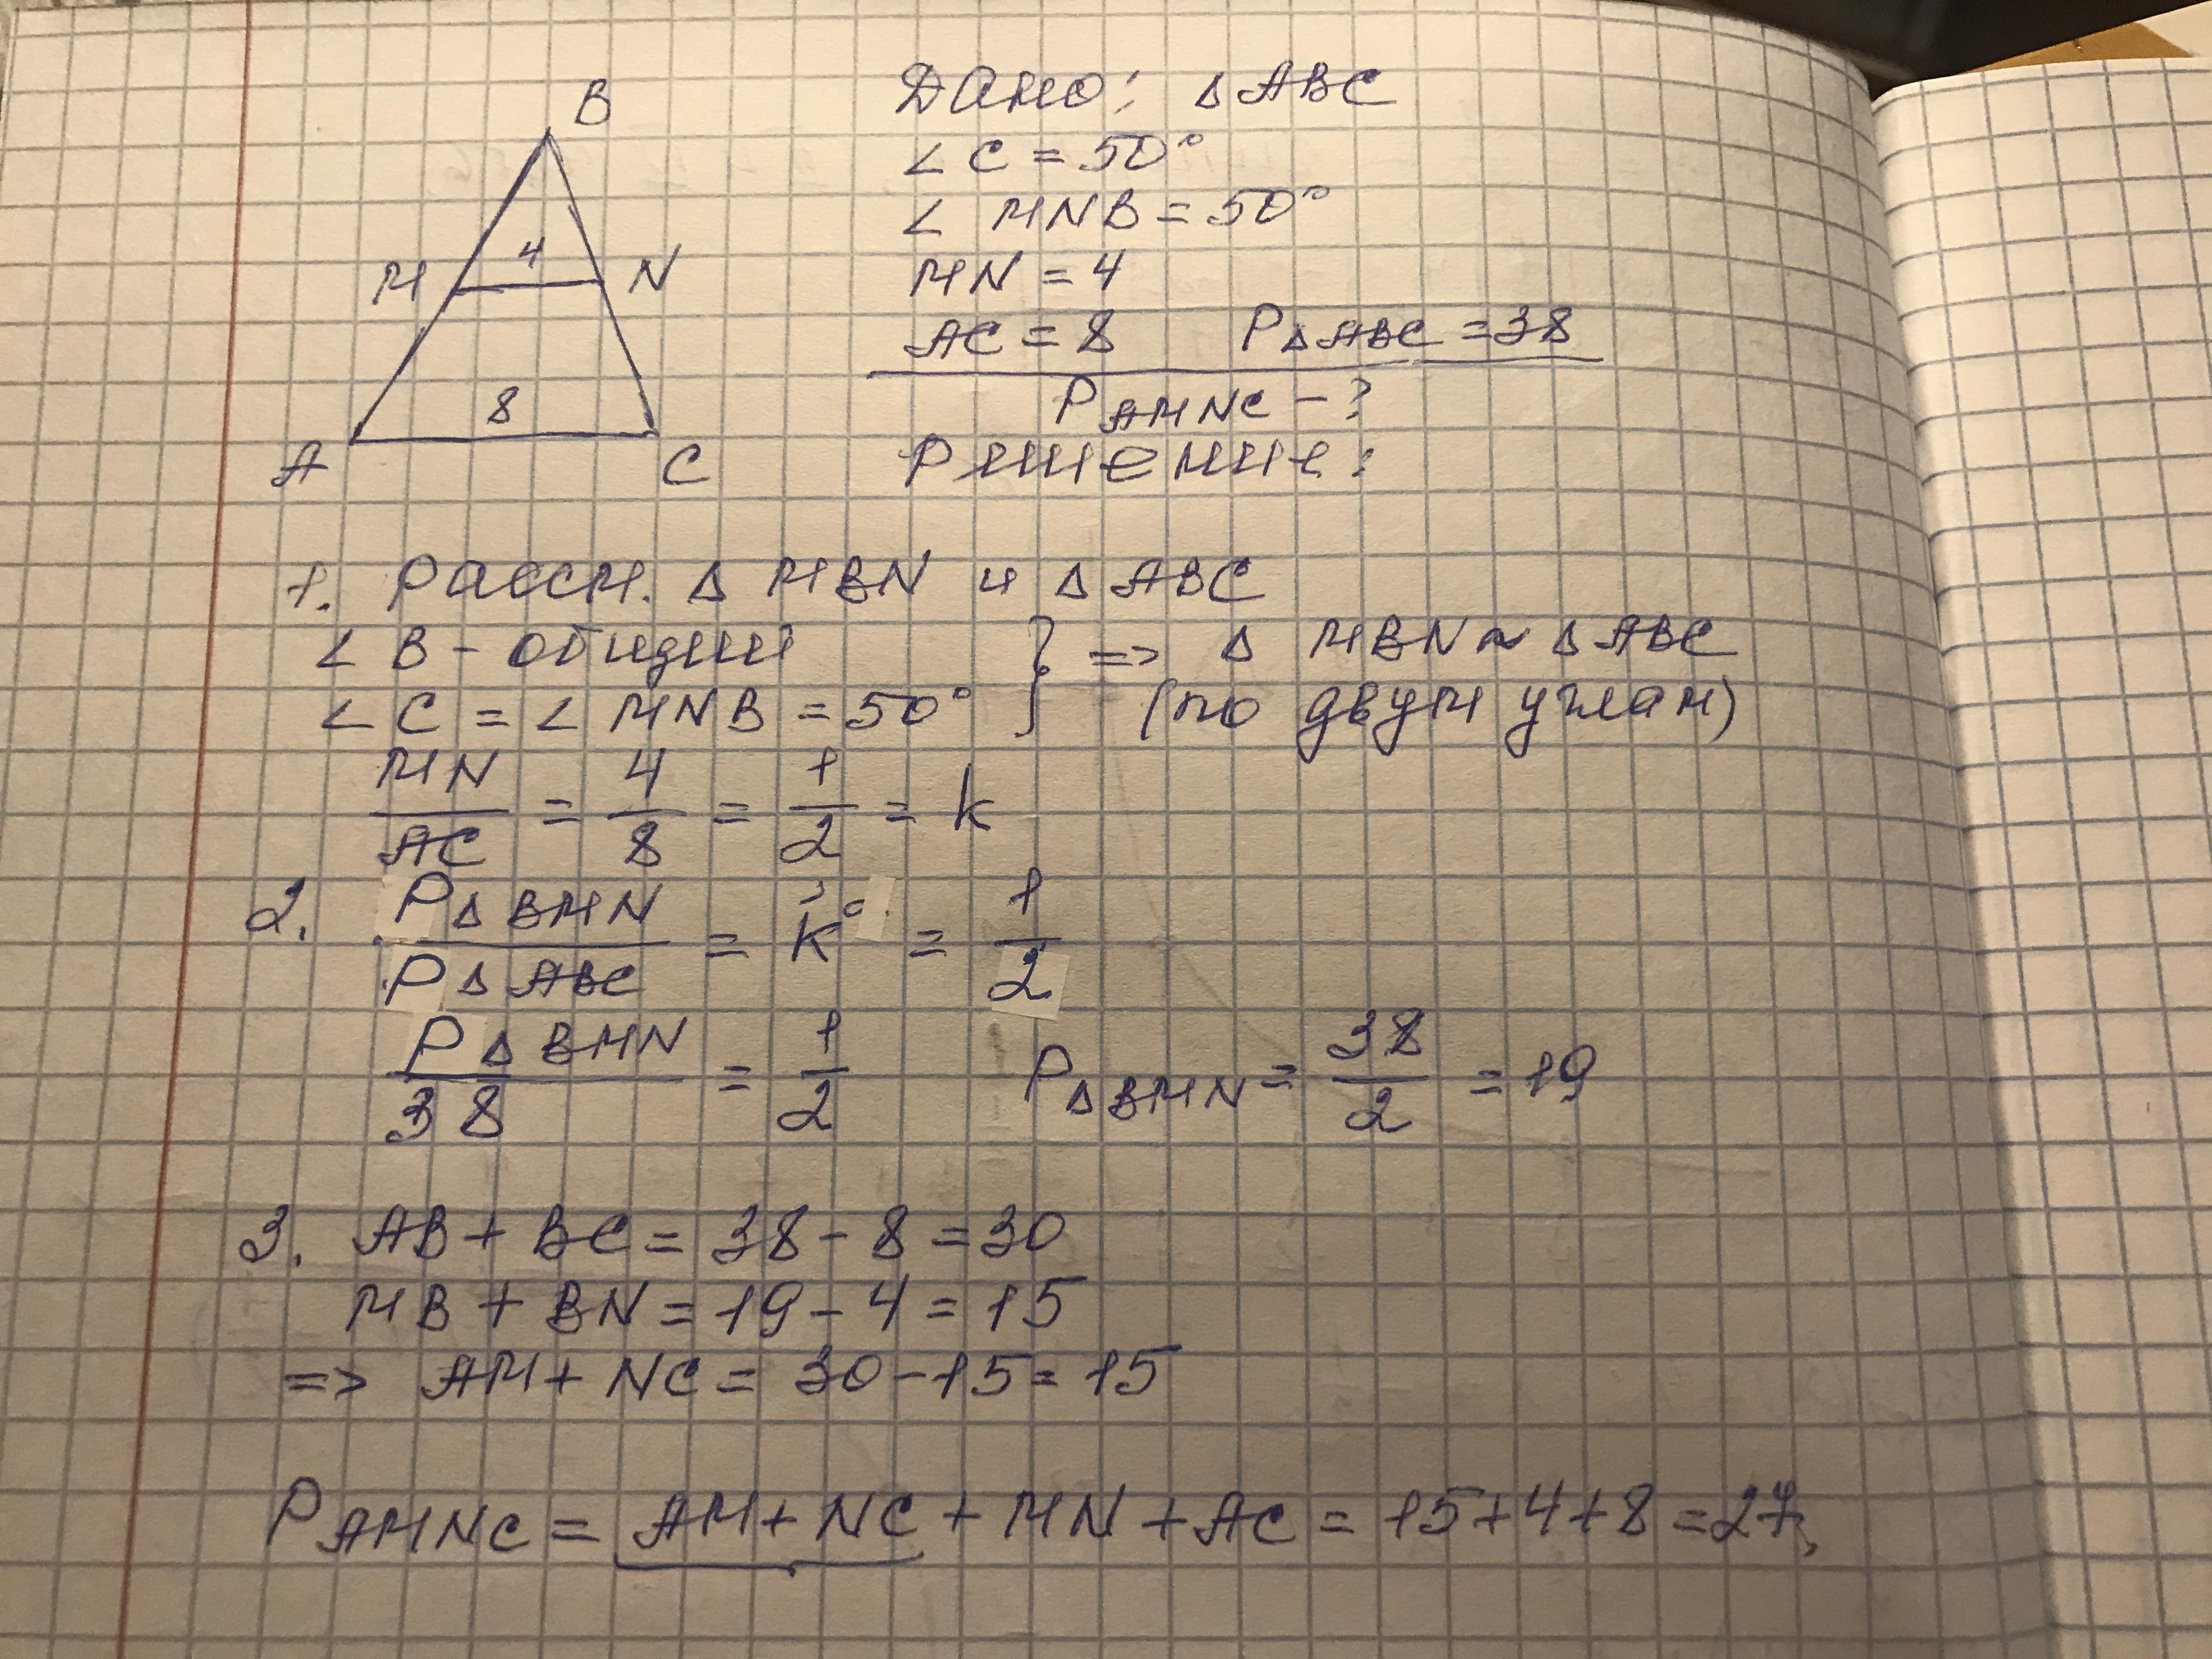 B
M 4 N
8
A C
Дано: △ABC
∠C = 50°
∠MNB = 50°
MN = 4
AC = 8 P△ABC = 38
PAMNC - ?
Решение:
1. Рассм. △MBN и △ABC
∠B - общий } => △MBN ~ △ABC
∠C = ∠MNB = 50° (по двум углам)
MN/AC = 4/8 = 1/2 = k
2. P△BMN/P△ABC = k = 1/2
P△BMN/38 = 1/2 P△BMN = 38/2 = 19
3. AB + BC = 38 - 8 = 30
MB + BN = 19 - 4 = 15
=> AM + NC = 30 - 15 = 15
PAMNC = AM + NC + MN + AC = 15 + 4 + 8 = 27,